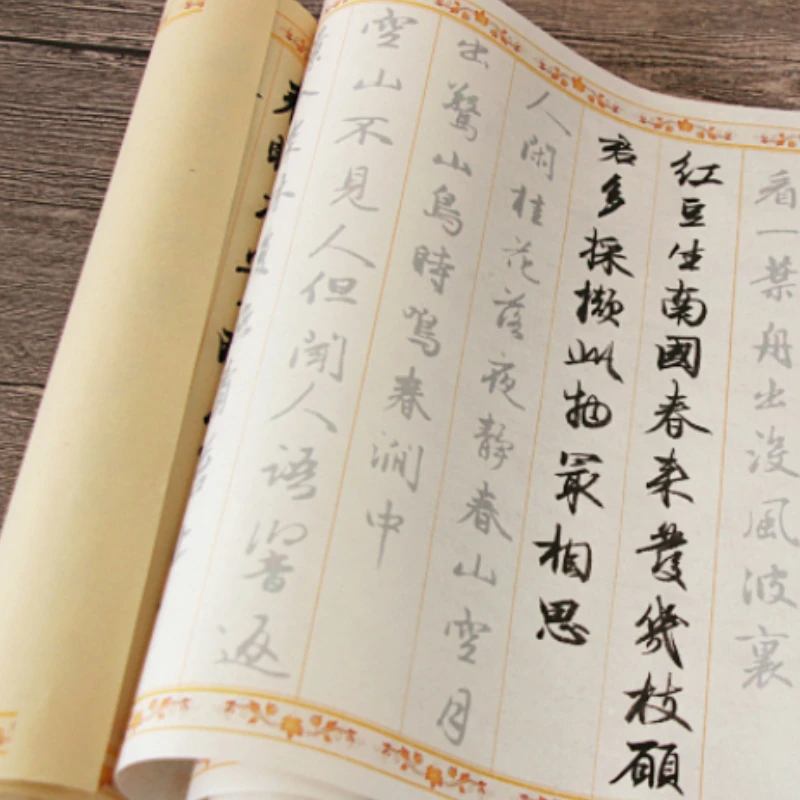 看一葉舟出沒風波裏
紅豆生南國春来發幾枝願
君多採擷此物最相思
人閑桂花落夜靜春山空月
出驚山鳥時鳴春澗中
空山不見人但聞人語響返